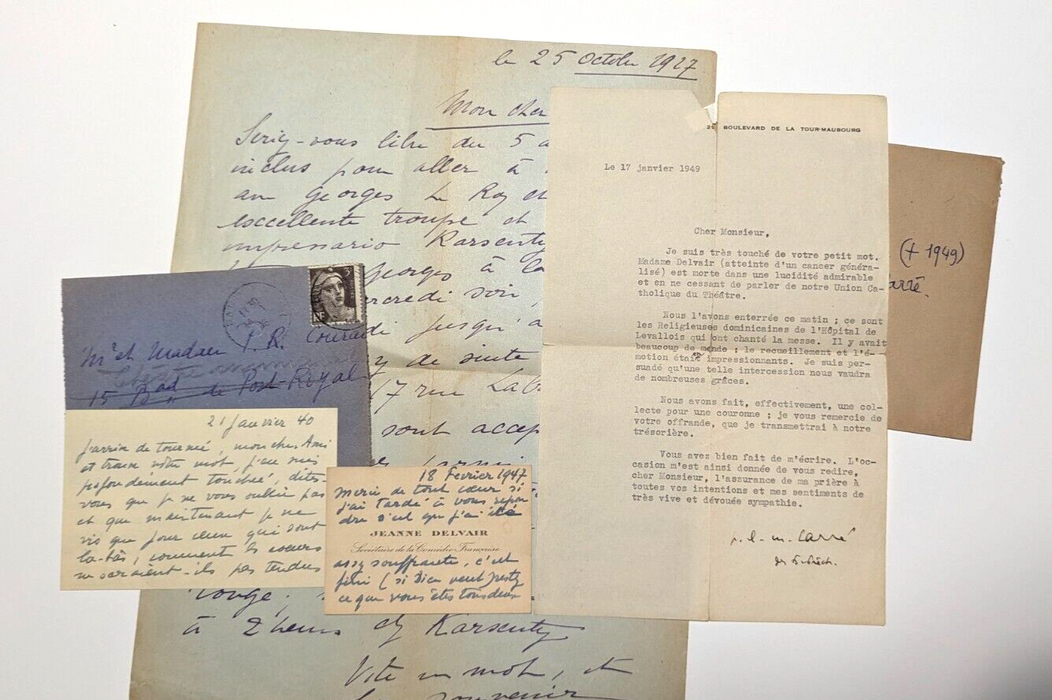 le 25 Octobre 1927
Mon cher
Seriez-vous libre du 5 a
inclus pour aller à
au Georges Le Roy et
excellente troupe et
impressario Karsenty
Georges à la
ercredi soir,
jusqu'a
de suite
17 rue La
sont accep
rouge,
à 2 heures chez Karsenty
Vite un mot, et
souvenir
26 BOULEVARD DE LA TOUR-MAUBOURG
Le 17 janvier 1949
Cher Monsieur,
Je suis très touché de votre petit mot.
Madame Delvair (atteinte d'un cancer généra-
lisé) est morte dans une lucidité admirable
et en ne cessant de parler de notre Union Ca-
tholique du Théâtre.
Nous l'avons enterrée ce matin ; ce sont
les Religieuses dominicaines de l'Hôpital de
Levallois qui ont chanté la messe. Il y avait
beaucoup de monde ; le recueillement et l'é-
motion était impressionnants. Je suis per-
suadé qu'une telle intercession nous vaudra
de nombreuses grâces.
Nous avons fait, effectivement, une col-
lecte pour une couronne ; je vous remercie de
votre offrande, que je transmettrai à notre
trésorière.
Vous avez bien fait de m'écrire. L'oc-
casion m'est ainsi donnée de vous redire,
cher Monsieur, l'assurance de ma prière à
toutes vos intentions et mes sentiments de
très vive et dévouée sympathie.
f. a. m. Carré
(+ 1949)
arré.
Mr et Madame P. R.
15 Bd. de Port-Royal
21 Janvier 40
J'arrive de tournée, mon cher Ami
et trouve votre mot, j'en suis
profondement touchée, dites-
vous que je ne vous oublie pas
et que maintenant je ne
vis que pour ceux qui sont
la-bas, comment les coeurs
ne seraient-ils pas tendus
18 Fevrier 1947
Merci de tout coeur si
j'ai tardé à vous repon
dre c'est que j'ai été
JEANNE DELVAIR
Sociétaire de la Comédie Française
assez souffrante, c'est
fini (si Dieu veut
ce que vous êtes tous deux